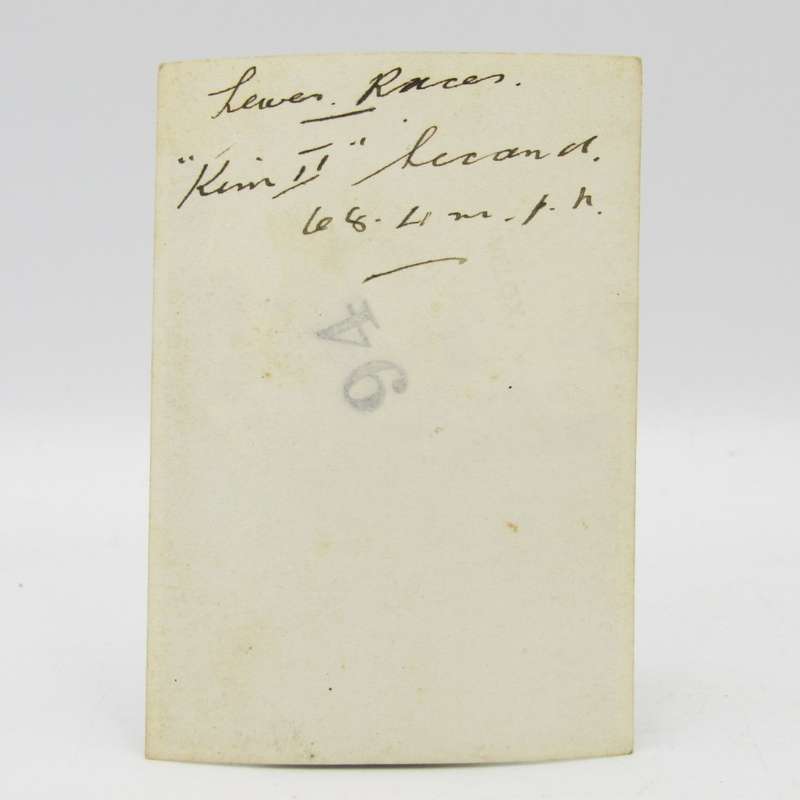 Lewes. Races.
"Kim II" Second.
68.4 m.p.h.
94